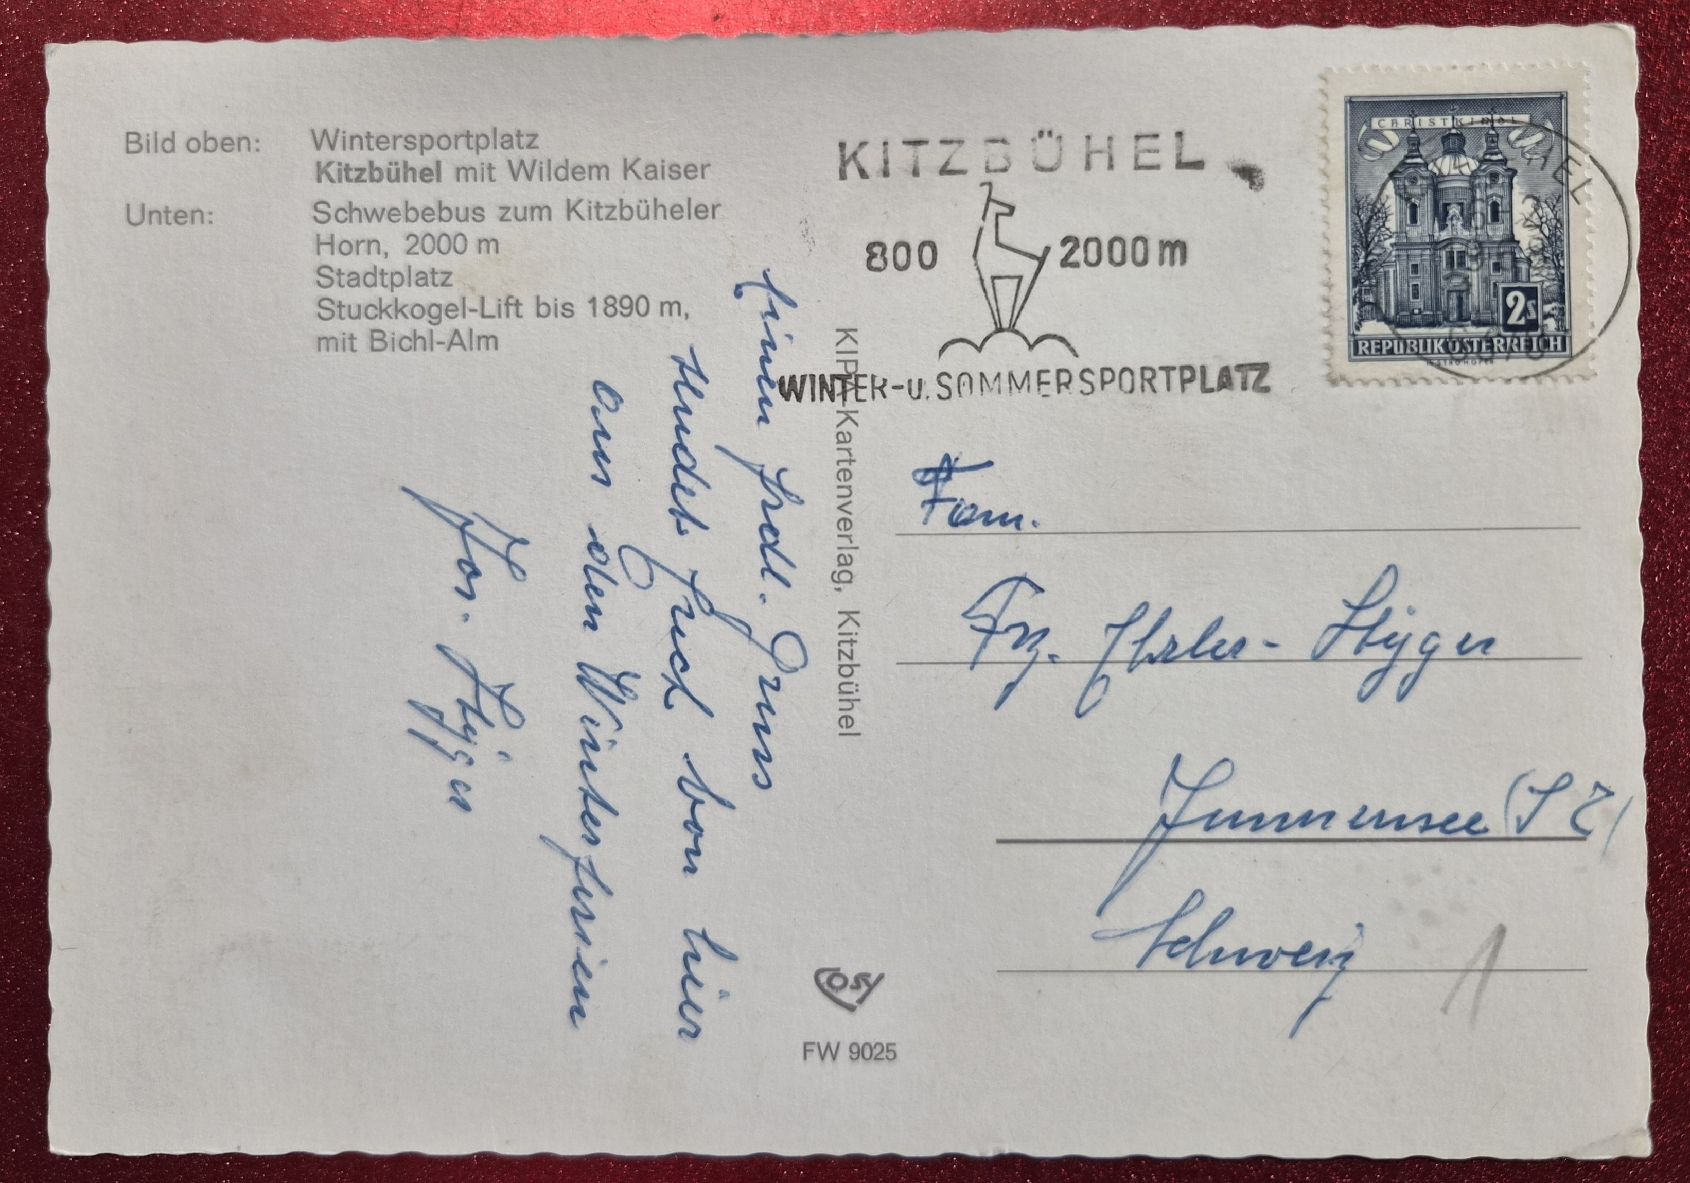 Bild oben: Wintersportplatz
Kitzbühel mit Wildem Kaiser
Unten: Schwebebus zum Kitzbüheler
Horn, 2000 m
Stadtplatz
Stuckkogel-Lift bis 1890 m,
mit Bichl-Alm
KITZBÜHEL
800 2000 m
WINTER-u. SOMMERSPORTPLATZ
CHRISTKINDL
2s
REPUBLIK ÖSTERREICH
Einen frdl. Gruss
sendet Euch von hier
aus den Winterferien
Jos. Styger
KIPA-Kartenverlag, Kitzbühel
Fam.
Frz. Ehrler-Styger
Immensee (SZ)
Schweiz
1
FW 9025